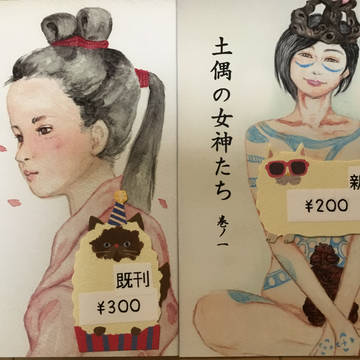 土偶の女神たち
巻ノ一
既刊
¥300
新
¥200